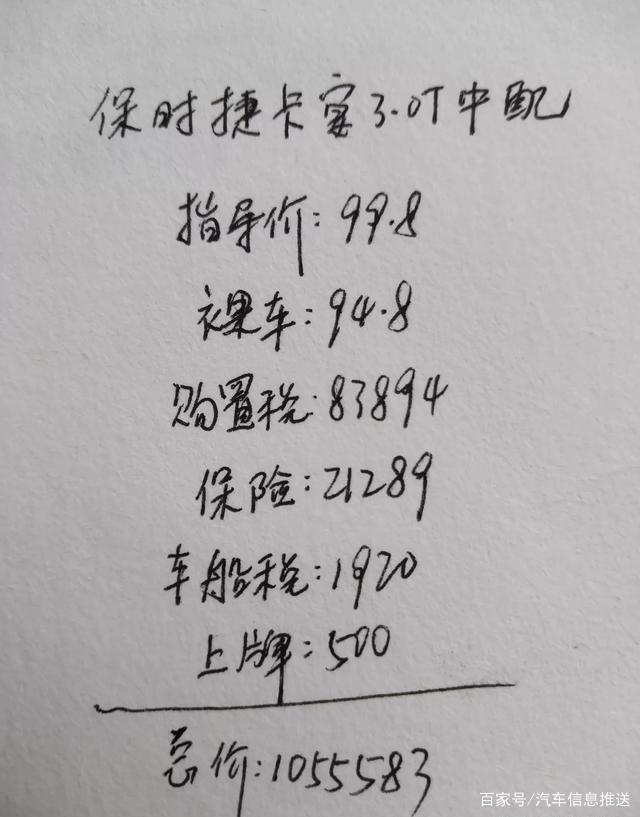 保时捷卡宴3.0T中配
指导价:99.8
裸车:94.8
购置税:83894
保险:21289
车船税:1920
上牌:500
总价:1055583
百家号/汽车信息推送